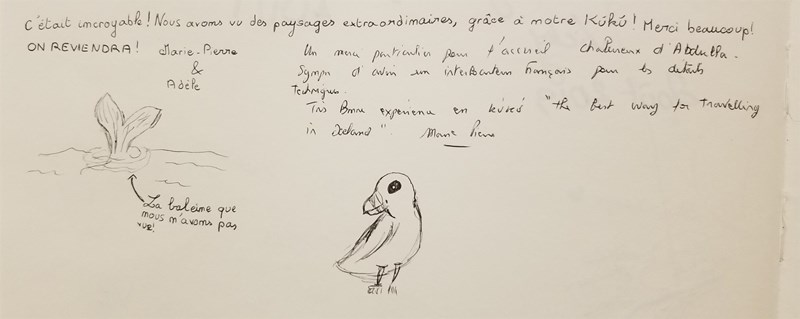 C'était incroyable! Nous avons vu des paysages extraordinaires, grâce à notre Kúkú! Merci beaucoup!
ON REVIENDRA! Marie-Pierre
&
Adèle
Un merci particulier pour l'accueil chaleureux d'Abdullha.
Sympa d'avoir un interlocuteur français pour les détails
techniques.
Très Bonne expérience en kúkú "the best way for travelling
in Iceland" Marie Pierre
La baleine que
nous n'avons pas
vue!